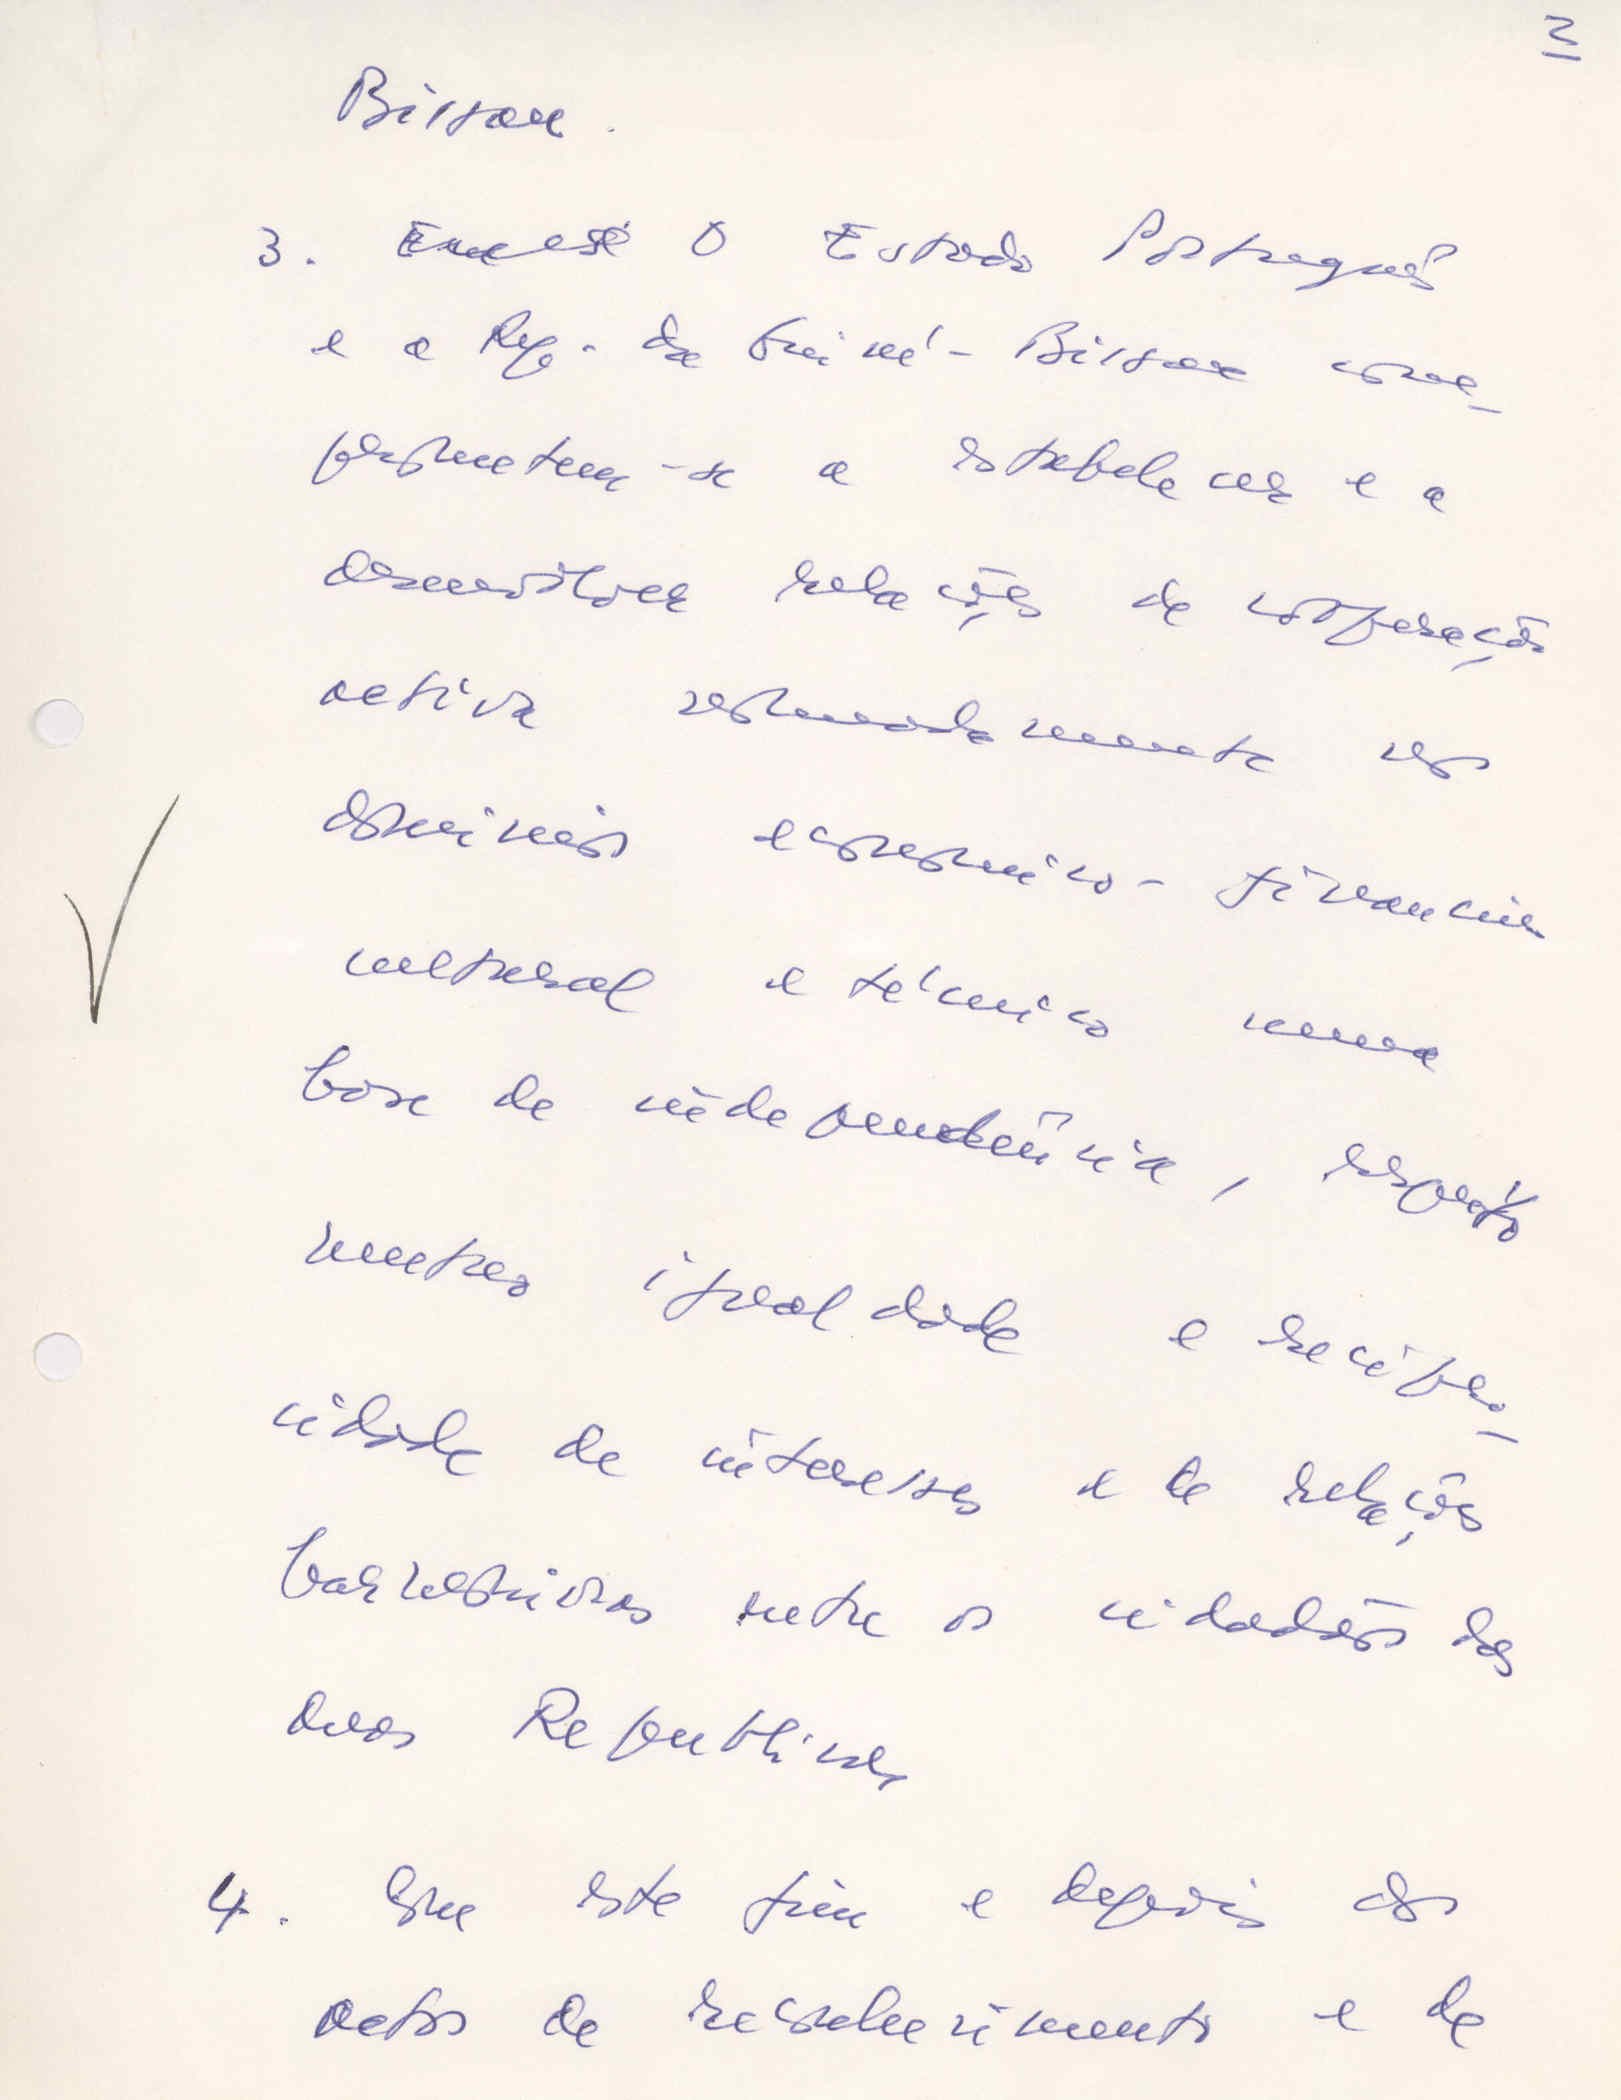 2
Bissau.
3. O Estado Português
e a Rep. da Guiné-Bissau com-
prometem-se a estabelecer e a
desenvolver relações de cooperação
activa nomeadamente nos
domínios económico-financeiro
cultural e técnico numa
base de independência, respeito
mutuo igualdade e recipro-
cidade de interesses e de relações
harmoniosas entre os cidadãos das
duas Republicas
4. Com este fim e depois dos
actos de reconhecimento e de